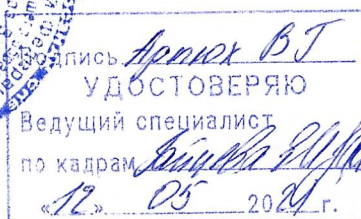 Подпись Артюх В Г
УДОСТОВЕРЯЮ
Ведущий специалист
по кадрам
«12» 05 2021 г.